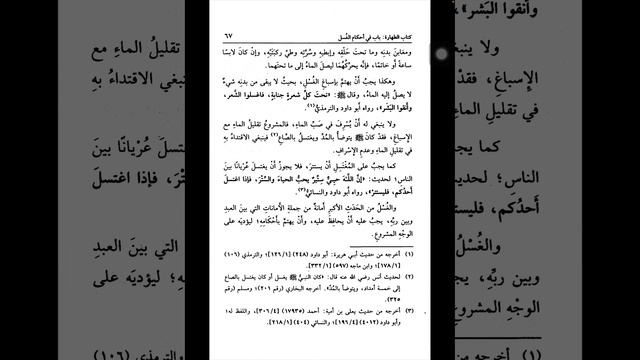 كتاب الطهارة: باب في أحكام الغُسل ٦٧
ومغابن بدنِه وما تحتَ حَلْقِه وإبطيهِ وسُرَّتِه وطيِّ ركبَتَيْه، وإنْ كانَ لابسًا
ساعةً أو خاتمًا، فإنَّه يحرِّكُهُما ليصلَ الماءُ إلى ما تحتَهما.
وهكذا يجبُ أنْ يهتمَّ بإسباغِ الغُسْلِ، بحيثُ لا يبقى من بدنِه شيءٌ
لا يصلُ إليه الماءُ، وقال ﷺ: «تحتَ كلِّ شعرةٍ جنابةٌ، فاغسلوا الشَّعر،
وأنقوا البَشَر»، رواه أبو داود والترمذيُّ(١).
ولا ينبغي له أنْ يُسْرِفَ في صَبِّ الماءِ، فالمشروعُ تقليلُ الماءِ مع
الإسباغِ، فقدْ كانَ ﷺ يتوضأُ بالمُدِّ ويغتسلُ بالصَّاعِ(٢) فينبغي الاقتداءُ به
في تقليلِ الماءِ وعدمِ الإسرافِ.
كما يجبُ على المُغْتَسِلِ أنْ يستترَ، فلا يجوزُ أنْ يغتسلَ عُرْيانًا بينَ
الناسِ؛ لحديث: «إنَّ اللَّهَ حييٌّ سِتِّيرٌ يحبُّ الحياءَ والسَّتْرَ، فإذا اغتسلَ
أحدُكم، فليستتر»، رواه أبو داود والنسائيُّ(٣).
والغُسْلُ من الحَدَثِ الأكبرِ أمانةٌ من جملةِ الأماناتِ التي بينَ العبدِ
وبين ربِّه، يجبُ عليه أنْ يحافظَ عليه، وأنْ يهتمَّ بأحْكَامِه؛ ليؤديَه على
الوجْهِ المشروعِ.
(١) أخرجه من حديث أبي هريرة: أبو داود (٢٤٨) [١/١٢٦]؛ والترمذي (١٠٦)
[١/١٧٨]؛ وابن ماجه (٥٩٧) [١/٣٣٢].
(٢) لحديث أنس رضي الله عنه قال: «كان النبيُّ ﷺ يغسل أو كان يغتسل بالصاع
إلى خمسة أمداد، ويتوضأ بالمُدِّ». أخرجه البخاري (رقم ٢٠١)؛ ومسلم (رقم
٣٢٥).
(٣) أخرجه من حديث يعلى بن أمية: أحمد (١٧٩٣٥) [٤/٣٠٦]، واللفظ له؛
وأبو داود (٤٠١٢) [٤/١٩٦]؛ والنسائي (٤٠٤) [١/٢١٨].